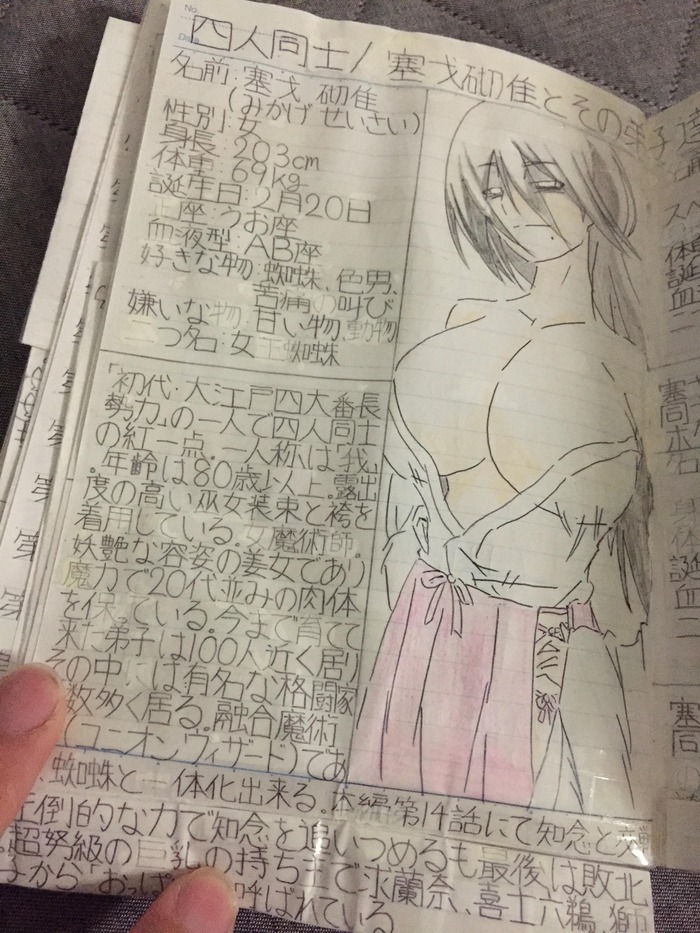 No.
Date
四人同士/塞戈砌隹とその弟子
名前:塞戈 砌隹
(みかげ せいさい)
性別:女
身長:203cm
体重:69kg
誕生日:2月20日
正座:うお座
血液型:AB座
好きな物:蜘蛛、色男、
苦痛の叫び
嫌いな物:甘い物、動物
二つ名:女王蜘蛛
「初代:大江戸四大番長
勢力」の一人で四人同士
の紅一点。一人称は「我」
。年齢は80歳以上。露出
度の高い巫女装束と袴を
着用している。女魔術師。
妖艶な容姿の美女であり
魔力で20代並みの肉体
を保っている。今まで育てて
来た弟子は100人近く居り
その中には有名な格闘家
数多く居る。融合魔術
(ユニオンウィザード)であ
、蜘蛛と一体化出来る。本編第14話にて知念と
圧倒的な力で知念を追いつめるも最後は敗北
。超弩級の巨乳の持ち主で求蘭奈、喜士六鵺、獅
子から「おっぱ 呼ばれている
スペ
体
誕
血
二
塞
同
石
身
体
誕
血
二
塞
同
第
第
第
第